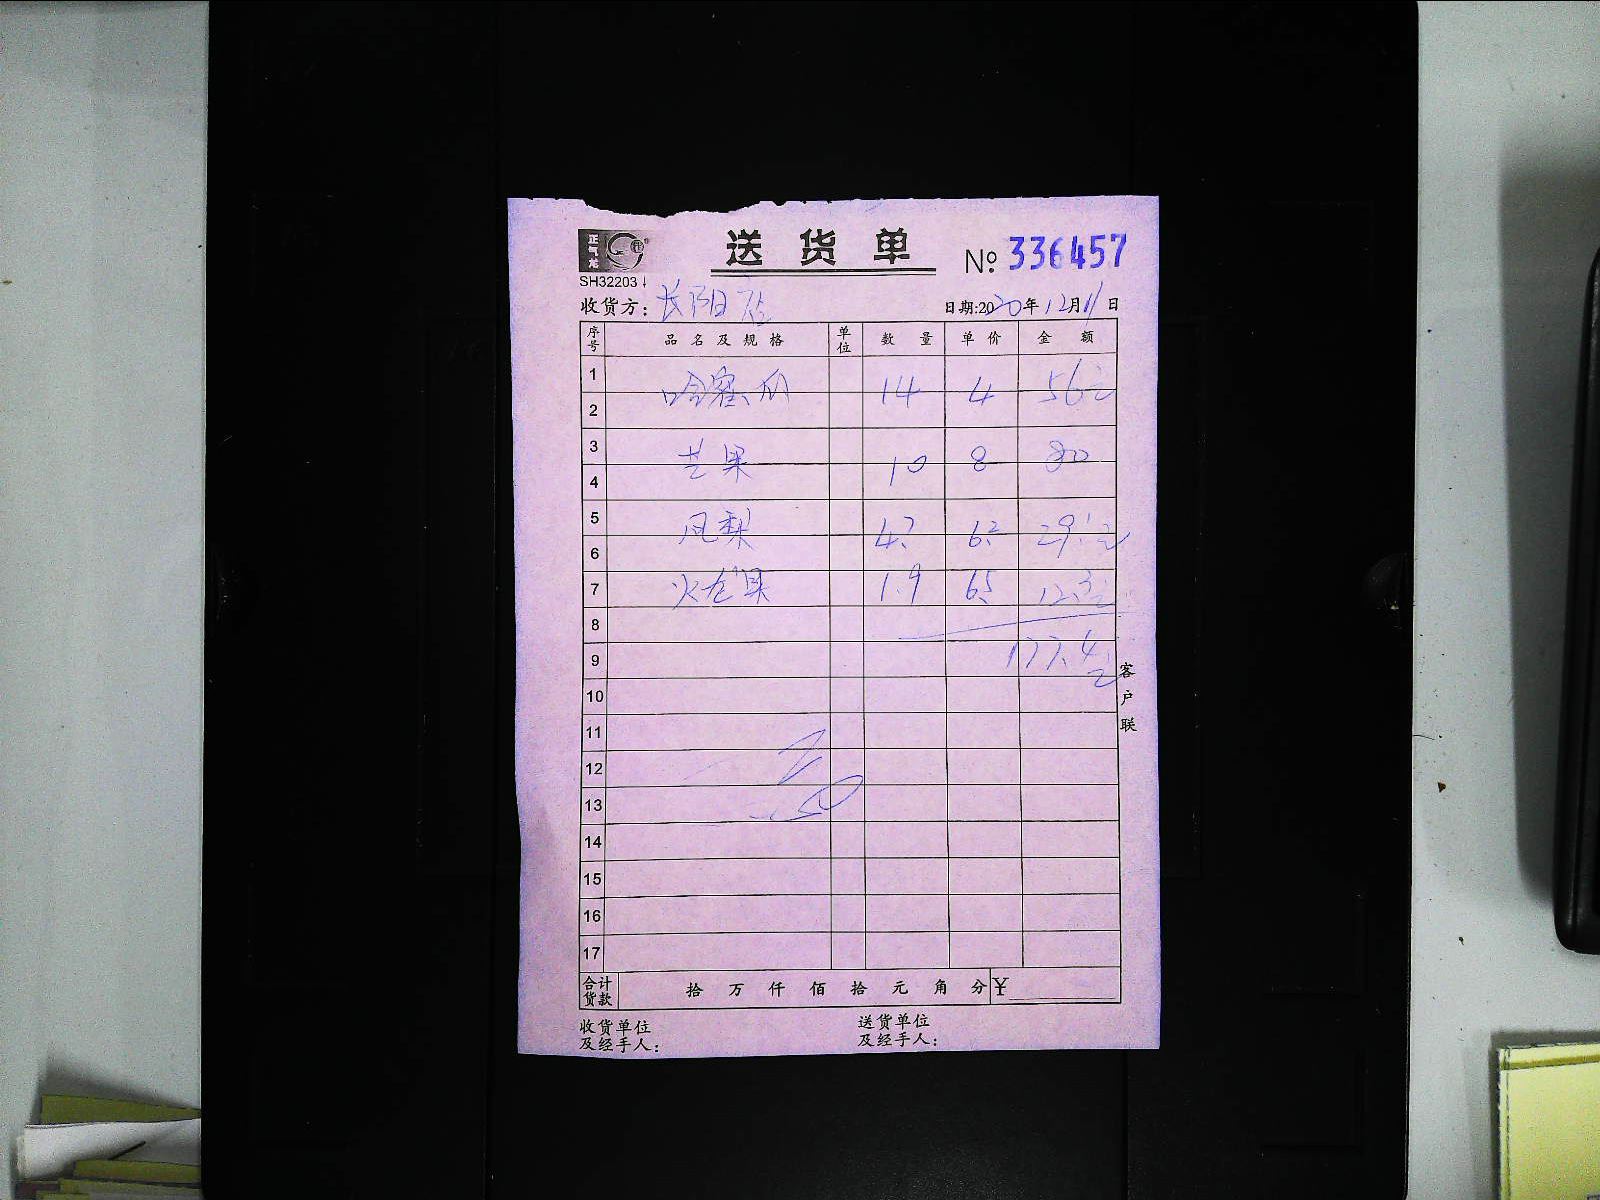 正气龙
送货单
№ 336457
SH32203
收货方: 长阳店 日期:2020年12月11日
序号 品名及规格 单位 数量 单价 金额
1 哈蜜瓜 14 4 56元
2
3 芒果 10 8 80
4
5 凤梨 4.7 6.2 29.1元
6
7 火龙果 1.9 6.5 12.3元
8
9 177.4元
10
11
12
13
14
15
16
17
客户联
合计货款 拾 万 仟 佰 拾 元 角 分 ¥
收货单位及经手人: 送货单位及经手人: